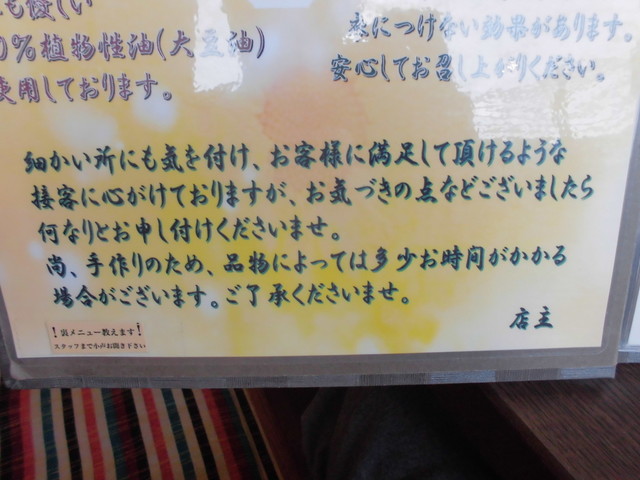 も優しい
0%植物性油(大豆油)
使用しております。
につけない効果があります。
安心してお召し上がりください。
細かい所にも気を付け、お客様に満足して頂けるような
接客に心がけておりますが、お気づきの点などございましたら
何なりとお申し付けくださいませ。
尚、手作りのため、品物によっては多少お時間がかかる
場合がございます。ご了承くださいませ。
店主
!裏メニュー教えます!
スタッフまで小声お聞き下さい